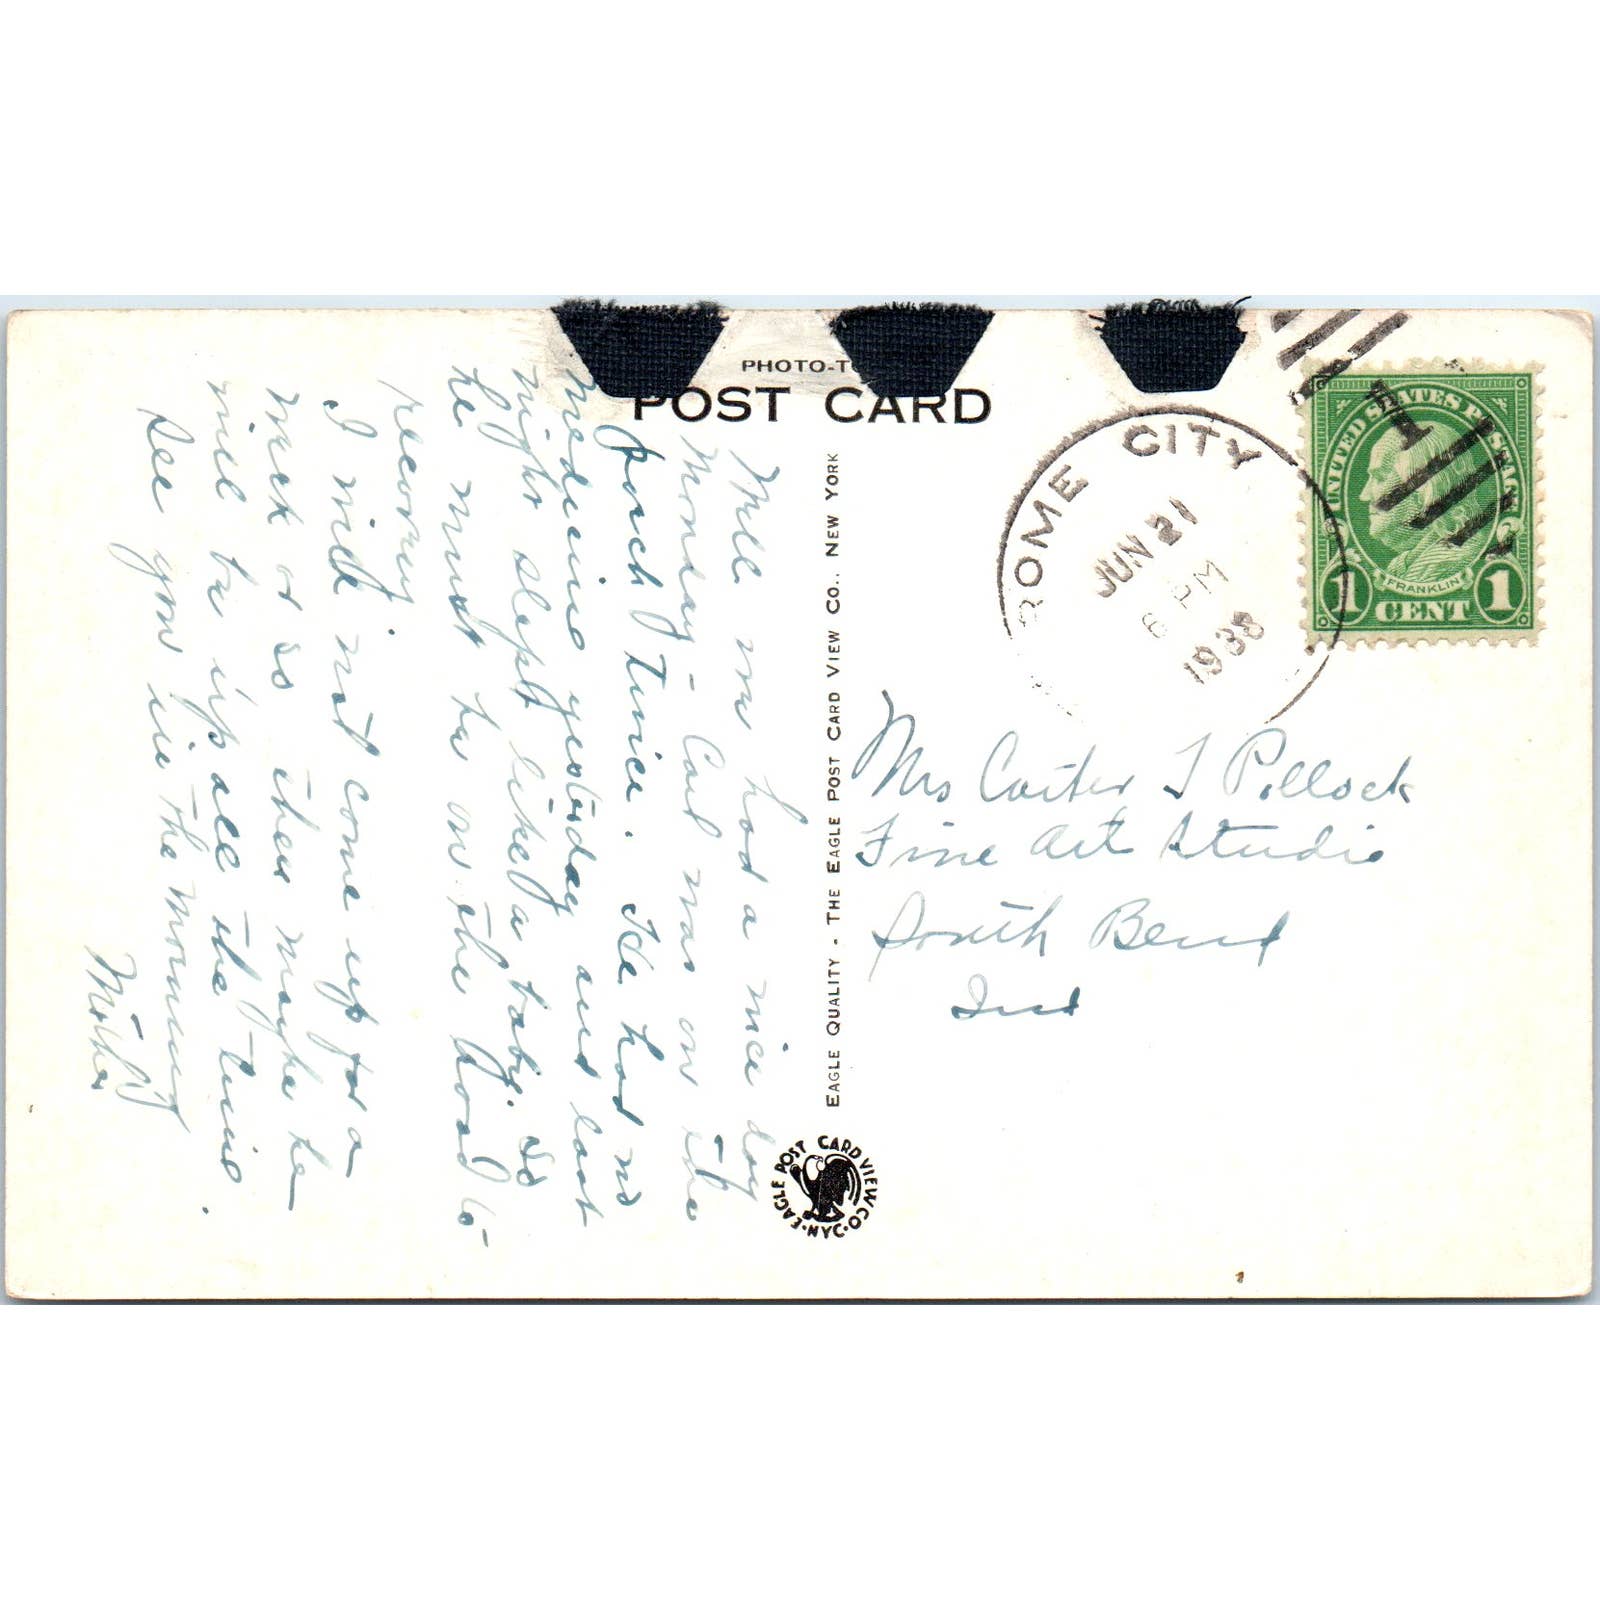 PHOTO-T
POST CARD
ROME CITY
JUN 21
6 PM
1938
UNITED STATES POSTAGE
FRANKLIN
1 CENT 1
1
Mrs Carter T Pollock
Fine Art Studio
South Bend
Ind
EAGLE QUALITY - THE EAGLE POST CARD VIEW CO., NEW YORK
EAGLE POST CARD VIEW CO. N.Y.C.
Well we had a nice day
Monday - Carl was on the
porch twice. He had no
medecine yesterday and last
night slept like a baby. So
he must be on the road to
recovery.
I will not come up for a
week or so then maybe he
will be up all the time.
See you in the morning
Mother